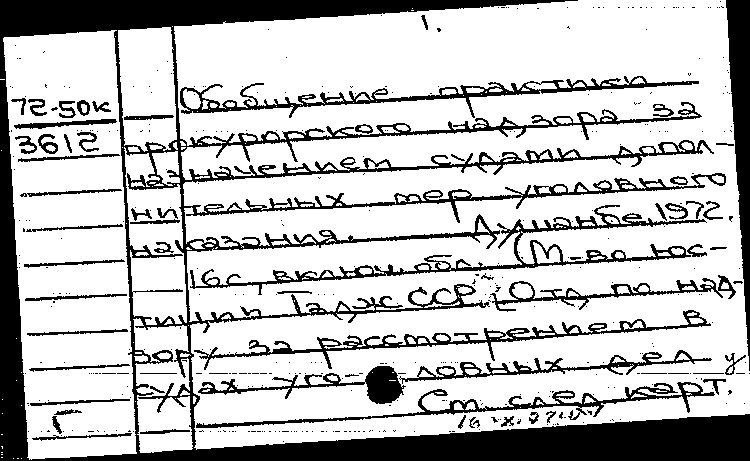 1.
72-50к
3612
Обобщение практики
прокурорского надзора за
назначением судами допол-
нительных мер уголовного
наказания. Душанбе, 1972.
16с, включ. обл. (М-во юс-
тиции ТаджССР. Отд по над-
зору за рассмотрением в
судах уго-ловных дел у
Г См след карт.